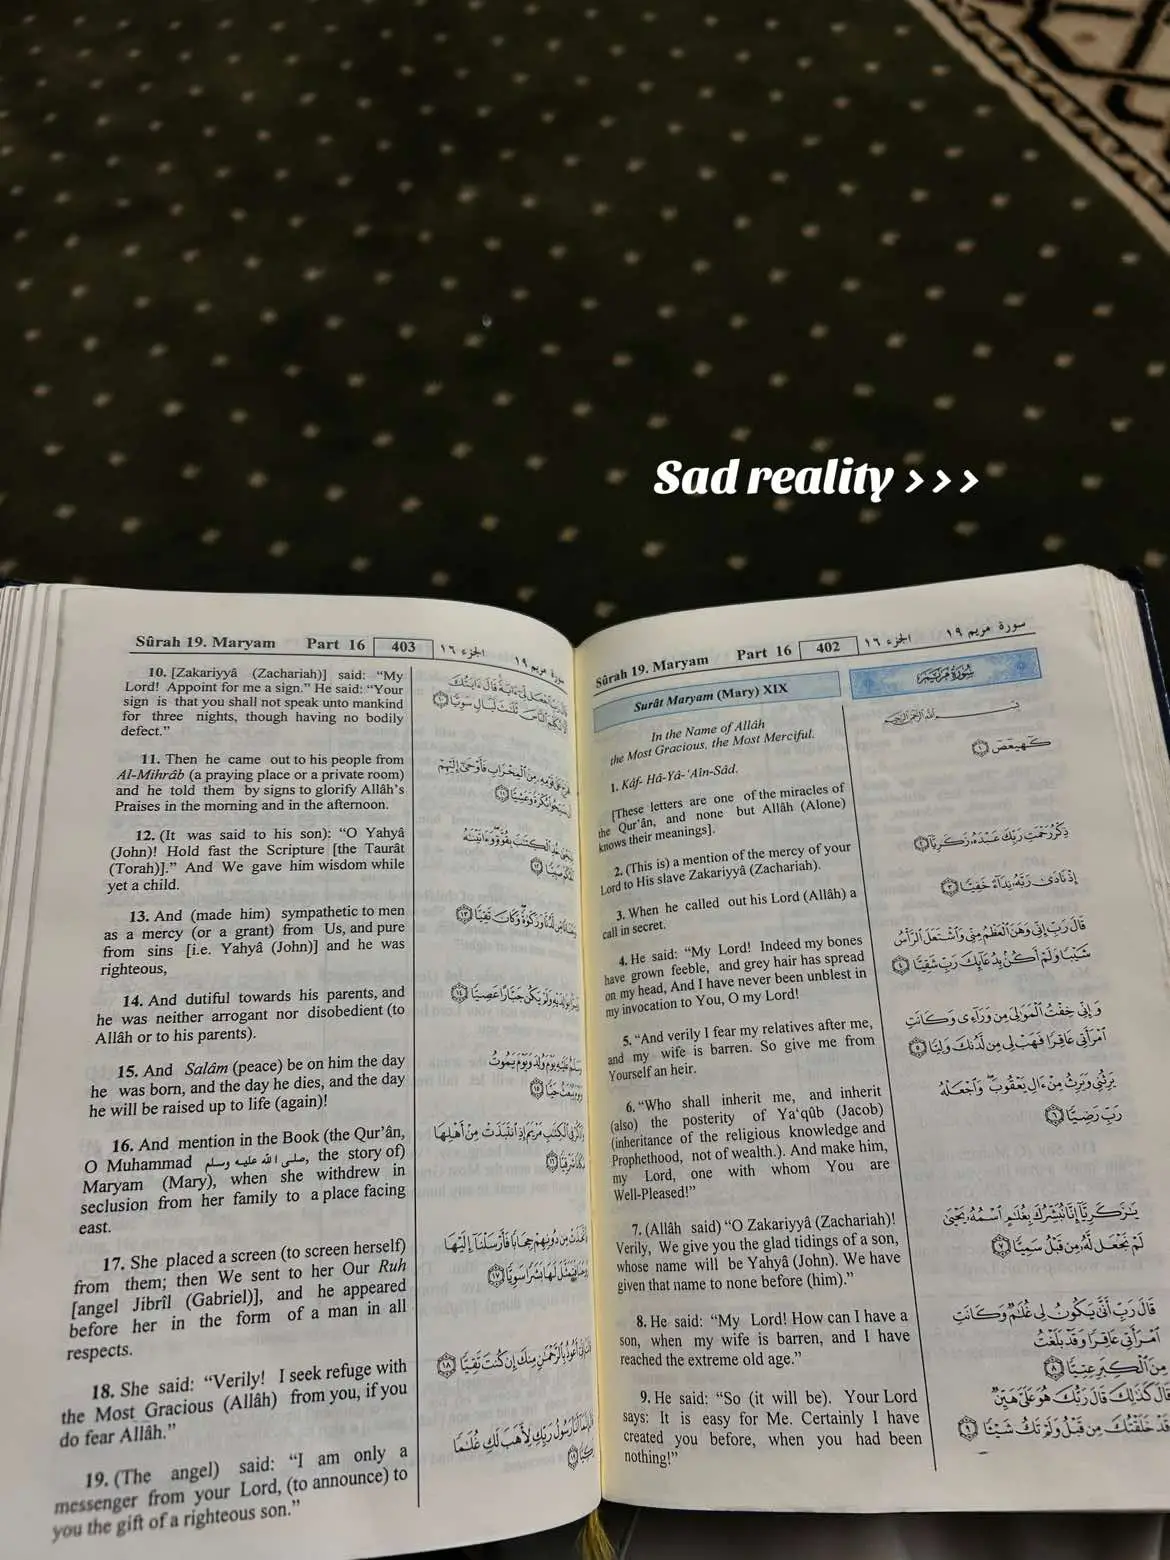 Sad reality >>>
Sûrah 19. Maryam Part 16 402 الجزء ١٦ سورة مريم ١٩
Surât Maryam (Mary) XIX
In the Name of Allâh
the Most Gracious, the Most Merciful.
1. Kâf- Hâ-Yâ-‘Aîn-Sâd.
[These letters are one of the miracles of
the Qur’ân, and none but Allâh (Alone)
knows their meanings].
2. (This is) a mention of the mercy of your
Lord to His slave Zakariyyâ (Zachariah).
3. When he called out his Lord (Allâh) a
call in secret.
4. He said: “My Lord! Indeed my bones
have grown feeble, and grey hair has spread
on my head, And I have never been unblest in
my invocation to You, O my Lord!
5. “And verily I fear my relatives after me,
and my wife is barren. So give me from
Yourself an heir.
6. “Who shall inherit me, and inherit
(also) the posterity of Ya‘qûb (Jacob)
(inheritance of the religious knowledge and
Prophethood, not of wealth.). And make him,
my Lord, one with whom You are
Well-Pleased!”
7. (Allâh said) “O Zakariyyâ (Zachariah)!
Verily, We give you the glad tidings of a son,
whose name will be Yahyâ (John). We have
given that name to none before (him).”
8. He said: “My Lord! How can I have a
son, when my wife is barren, and I have
reached the extreme old age.”
9. He said: “So (it will be). Your Lord
says: It is easy for Me. Certainly I have
created you before, when you had been
nothing!”
سورة مريم
بسم الله الرحمن الرحيم
كهيعص ١
ذكر رحمت ربك عبده زكريا ٢
إذ نادى ربه نداء خفيا ٣
قال رب إني وهن العظم مني واشتعل الرأس
شيبا ولم أكن بدعائك رب شقيا ٤
وإني خفت الموالي من وراءى وكانت
امرأتي عاقرا فهب لي من لدنك وليا ٥
يرثني ويرث من ءال يعقوب واجعله
رب رضيا ٦
يزكريا إنا نبشرك بغلم اسمه يحيى
لم نجعل له من قبل سميا ٧
قال رب أنى يكون لي غلم وكانت
امرأتي عاقرا وقد بلغت
من الكبر عتيا ٨
قال كذلك قال ربك هو على هين
وقد خلقتك من قبل ولم تك شيئا ٩
Sûrah 19. Maryam Part 16 403 الجزء ١٦ سورة مريم ١٩
10. [Zakariyyâ (Zachariah)] said: “My
Lord! Appoint for me a sign.” He said: “Your
sign is that you shall not speak unto mankind
for three nights, though having no bodily
defect.”
11. Then he came out to his people from
Al-Mihrâb (a praying place or a private room)
and he told them by signs to glorify Allâh’s
Praises in the morning and in the afternoon.
12. (It was said to his son): “O Yahyâ
(John)! Hold fast the Scripture [the Taurât
(Torah)].” And We gave him wisdom while
yet a child.
13. And (made him) sympathetic to men
as a mercy (or a grant) from Us, and pure
from sins [i.e. Yahyâ (John)] and he was
righteous,
14. And dutiful towards his parents, and
he was neither arrogant nor disobedient (to
Allâh or to his parents).
15. And Salâm (peace) be on him the day
he was born, and the day he dies, and the day
he will be raised up to life (again)!
16. And mention in the Book (the Qur’ân,
O Muhammad صلى الله عليه وسلم, the story of)
Maryam (Mary), when she withdrew in
seclusion from her family to a place facing
east.
17. She placed a screen (to screen herself)
from them; then We sent to her Our Ruh
[angel Jibrîl (Gabriel)], and he appeared
before her in the form of a man in all
respects.
18. She said: “Verily! I seek refuge with
the Most Gracious (Allâh) from you, if you
do fear Allâh.”
19. (The angel) said: “I am only a
messenger from your Lord, (to announce) to
you the gift of a righteous son.”